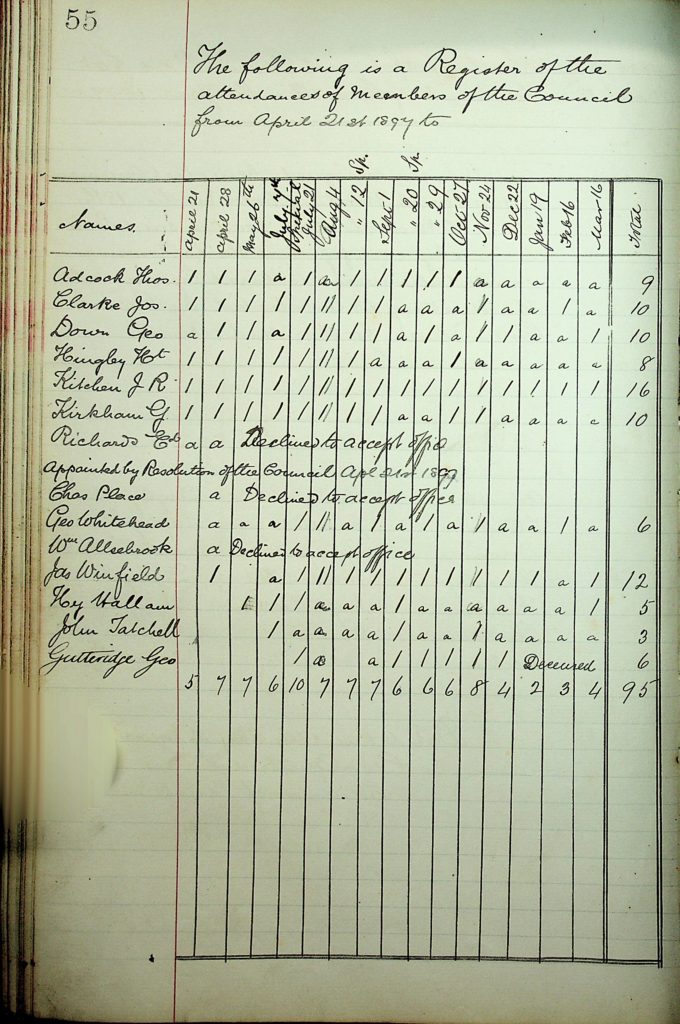 55
The following is a Register of the
attendances of Members of the Council
from April 21st 1897 to
Names. April 21 April 28 May 26th July 7th July 21 Aug 4 " 12 Sp. Sept 1 " 20 Sp. " 29 Oct 27 Nov 24 Dec 22 Jan 19 Feb 16 Mar 16 Total
Adcock Thos. / / / a / a / / / / / a a a a a 9
Clarke Jos. / / / / / // / / a a a / a a / a 10
Down Geo a / / a / // / / a / a / / a a / 10
Hingley Ht / / / / / // / a a a / a a a a a 8
Kitchen J R / / / / / // / / / / / / / / / / 16
Kirkham G / / / / / // / / a a / / a a a a 10
Richards Ed a a Declined to accept office
Appointed by Resolution of the Council Apl 21st 1897
Chas Place a Declined to accept office
Geo Whitehead a a a / // a / a / a / a a / a 6
Wm Allsebrook a Declined to accept office
Jas Winfield / a / // / / / / / / / / a / 12
Hy Hallam / / / a a a / a a a a a a / 5
John Tatchell / a a a a / a a / a a a a 3
Gutteridge Geo / a a / / / / / Deceased 6
5 7 7 6 10 7 7 7 6 6 6 8 4 2 3 4 95